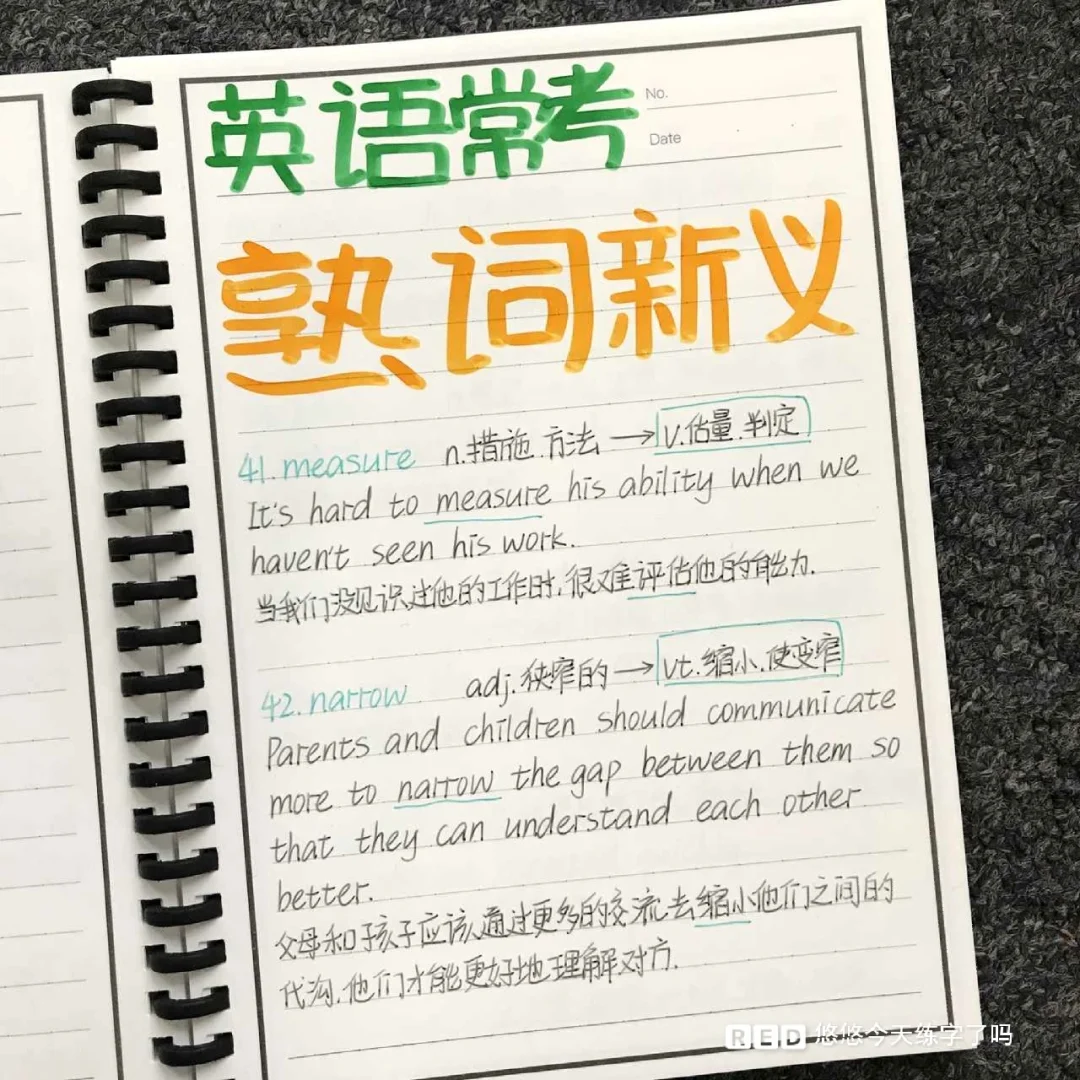 英语常考
No.
Date
熟词新义
41. measure n.措施.方法→v.估量.判定
It's hard to measure his ability when we
haven't seen his work.
当我们没见识过他的工作时,很难评估他的能力.
42. narrow adj.狭窄的→vt.缩小.使变窄
Parents and children should communicate
more to narrow the gap between them so
that they can understand each other
better.
父母和孩子应该通过更多的交流去缩小他们之间的
代沟.他们才能更好地理解对方.
RED 悠悠今天练字了吗